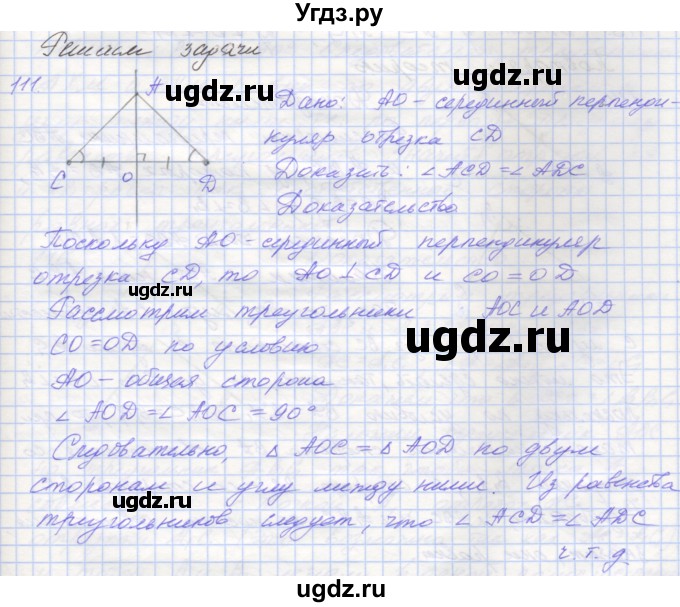 Угдз.ру
Решаем задачи
111
A
C
O
D
Дано: AO - серединный перпенди-
куляр отрезка CD
Доказать: ∠ACD = ∠ADC
Доказательство
Поскольку AO - серединный перпендикуляр
отрезка CD, то AO ⊥ CD и CO = OD
Рассмотрим треугольники AOC и AOD
CO = OD по условию
AO - общая сторона
∠AOD = ∠AOC = 90°
Следовательно, △AOC = △AOD по двум
сторонам и углу между ними. Из равенства
треугольников следует, что ∠ACD = ∠ADC
ч.т.д.
ugdz.ru
ugdz.ru
ugdz.ru
ugdz.ru
ugdz.ru
ugdz.ru
ugdz.ru
ugdz.ru
ugdz.ru